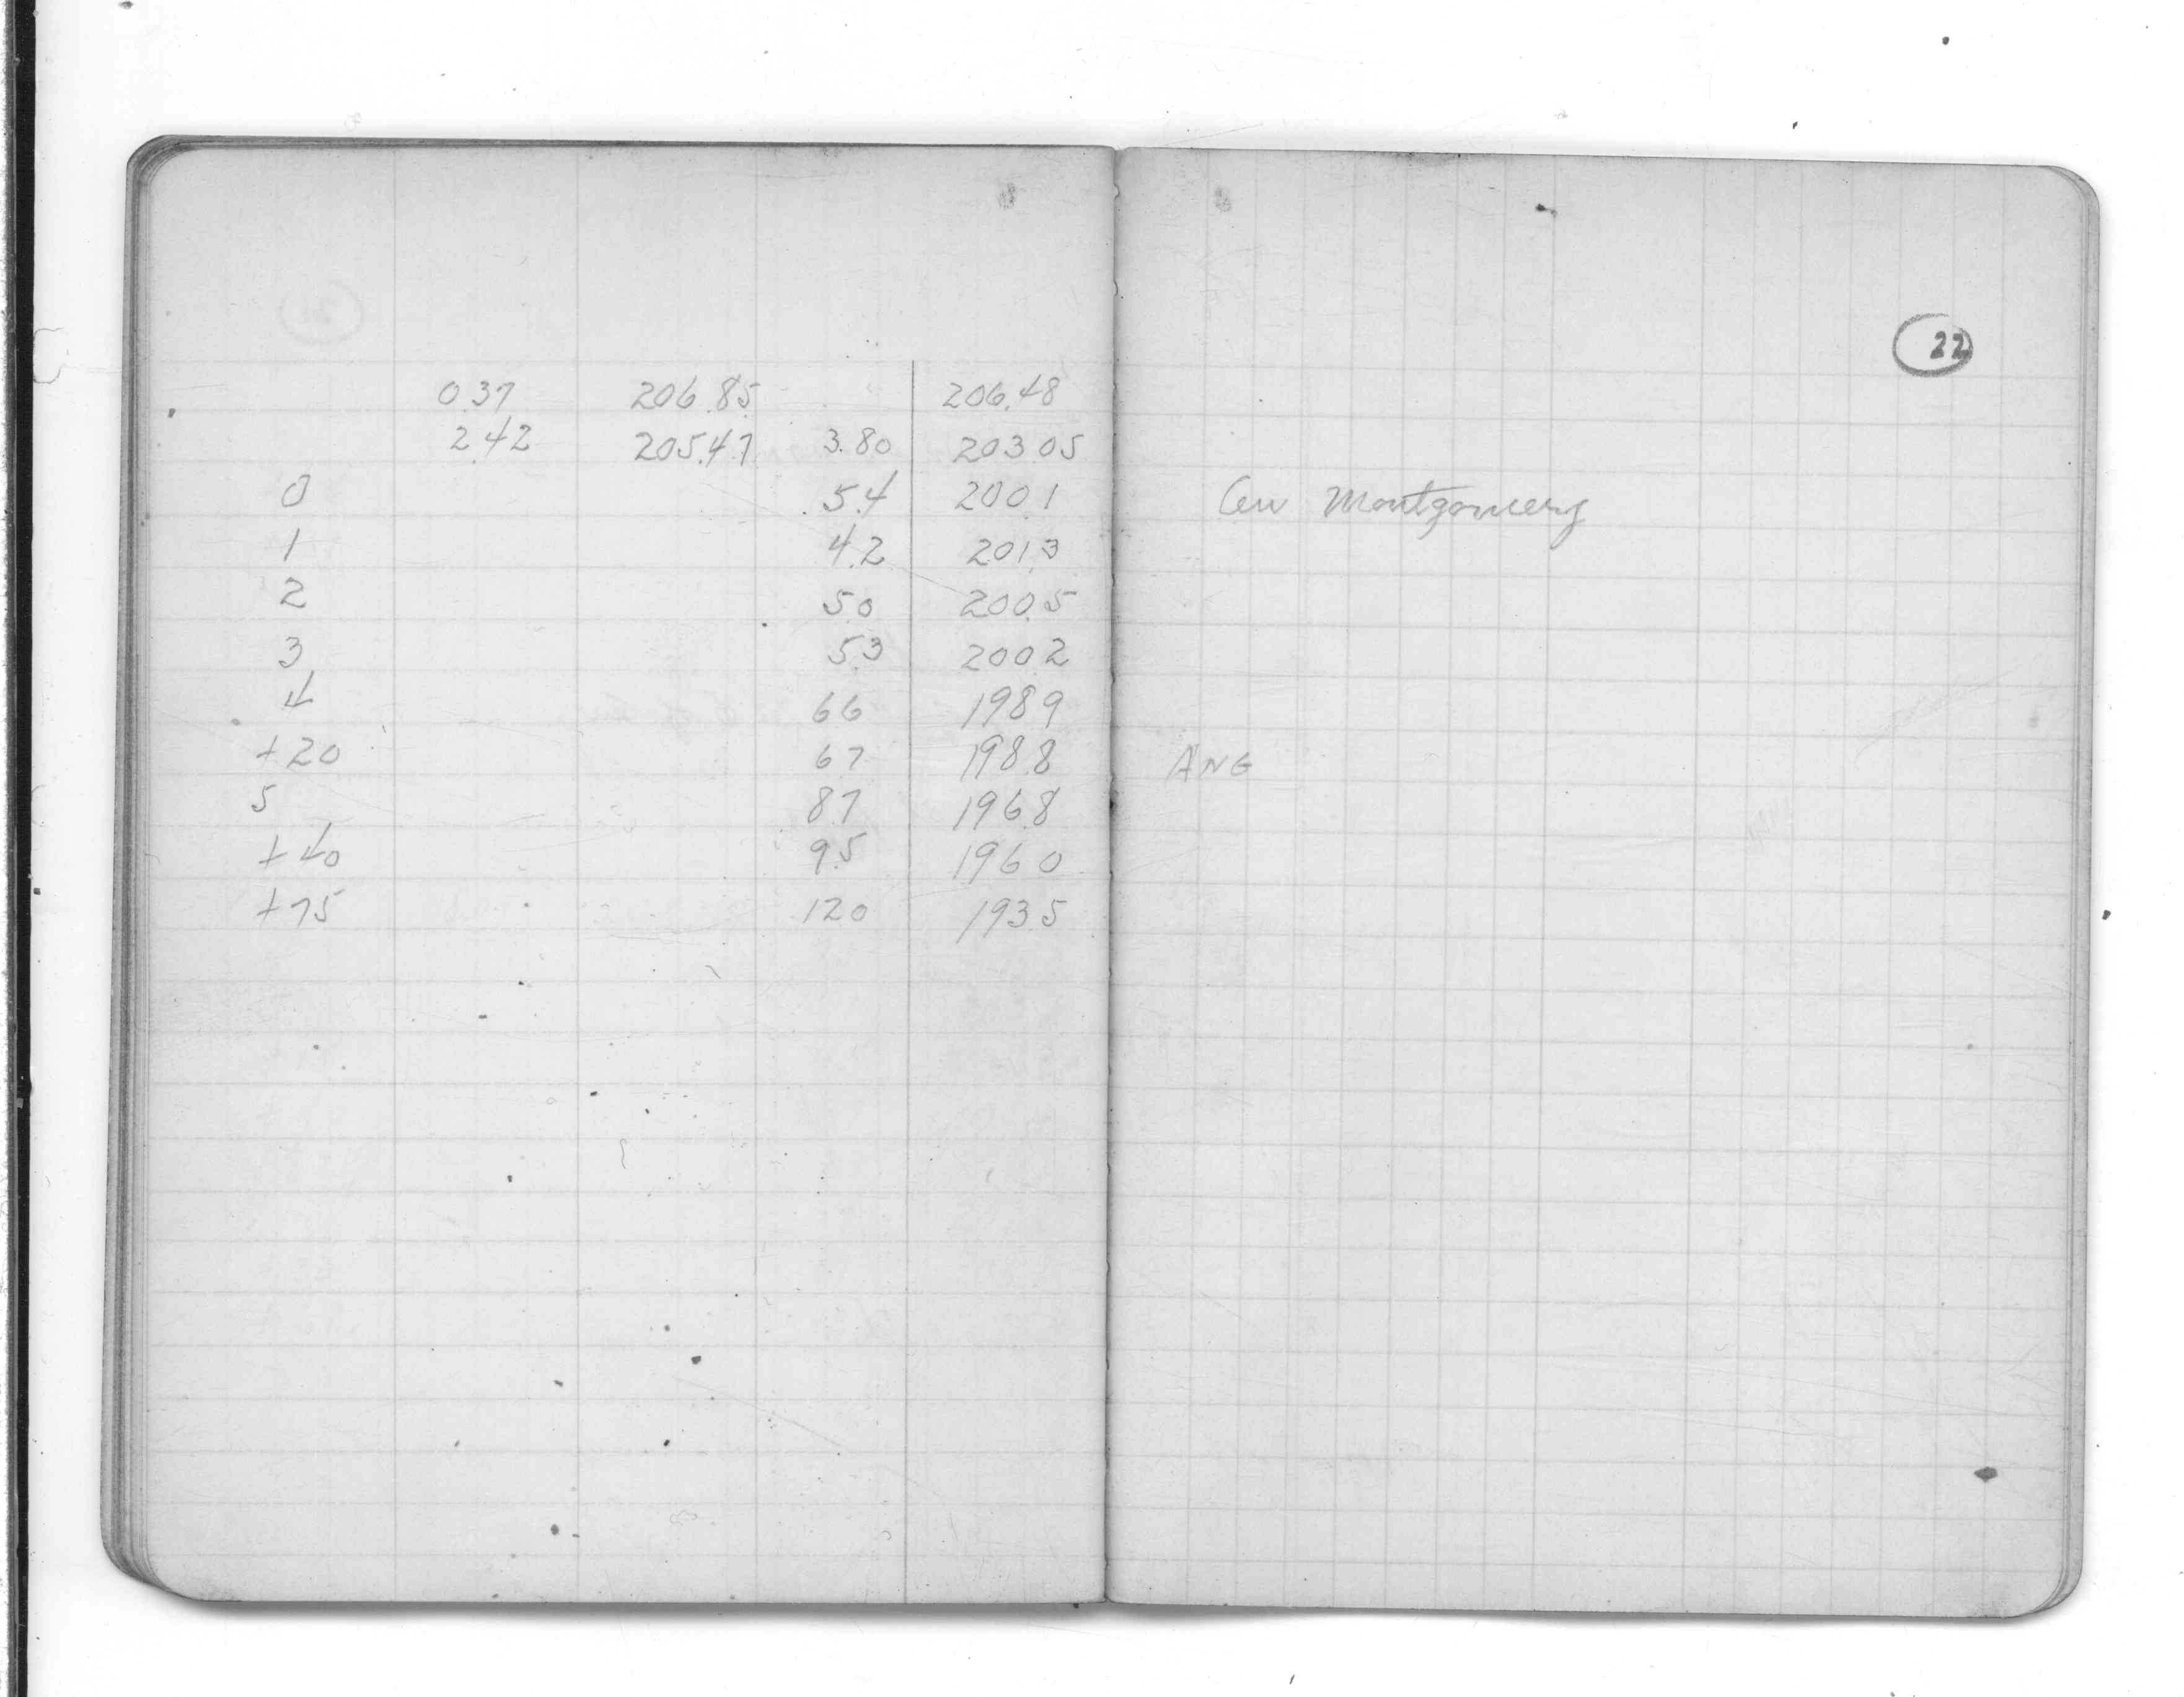 22
0.37 206.85 206.48
2.42 205.47 3.80 203.05
0 5.4 200.1
1 4.2 201.3
2 5.0 200.5
3 5.3 200.2
4 6.6 198.9
+20 6.7 198.8 ANG
5 8.7 196.8
+40 9.5 196.0
+75 12.0 193.5
Cen Montgomery